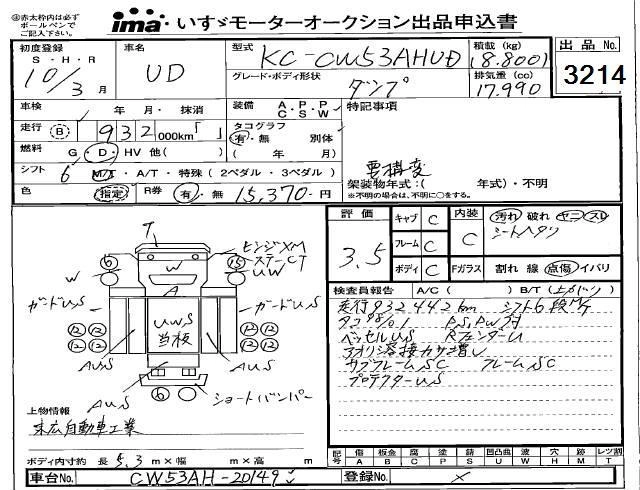 ◎赤太枠内は必ず
ボールペンで
ご記入下さい。
ima いすゞモーターオークション出品申込書
初度登録 S・H・R 10/3月
車名 UD
型式 KC-CW53AHUD
積載(kg) (8.800)
出品 No. 3214
グレード・ボディ形状 ダンプ
排気量(cc) 17.990
車検 年 月・抹消
装備 A・P・P C・S・W
特記事項
走行 B 932 000km「 」
タコグラフ 有・無 別体 ( 年 月)
燃料 G・D・HV 他( )
シフト 6 M/T・A/T・特殊(2ペダル・3ペダル)
要構変
架装物年式:( 年式)・不明
※不明の場合は、不明に○をする。
色 指定 R券 有・無 15,370-円
評価 3.5
キャブ C
フレーム C
ボディ C
内装 C
汚れ 破れ ヤニ スレ
シートヘタリ
Fガラス 割れ 線 点傷 イバリ
検査員報告 A/C( ) B/T(上がり)
走行932442km シフト6段M/T
タコ98/01 P.S, P.W付
ベッセルUS RフェンダーU
アオリ溶接カサ増し
サブフレームSC フレームSC
プロテクターUS
T
ヒンジXM
ステーCT
UW
W
W
A
6
15
ガードUS
ガードUS
UWS
当板
12 12
12 12
12 12
12 12
AUS
AUS
AUS
6
ショートバンパー
上物情報
末広自動車工業
ボディ内寸約 長 5.3 m×幅 m×高 m
記号 傷 A 板金 B 腐 C 塗 P 錆 S 凹凸曲 U 波 W 穴 H 跡 M レツ割 T
車台No. CW53AH-20149
登録No. ×